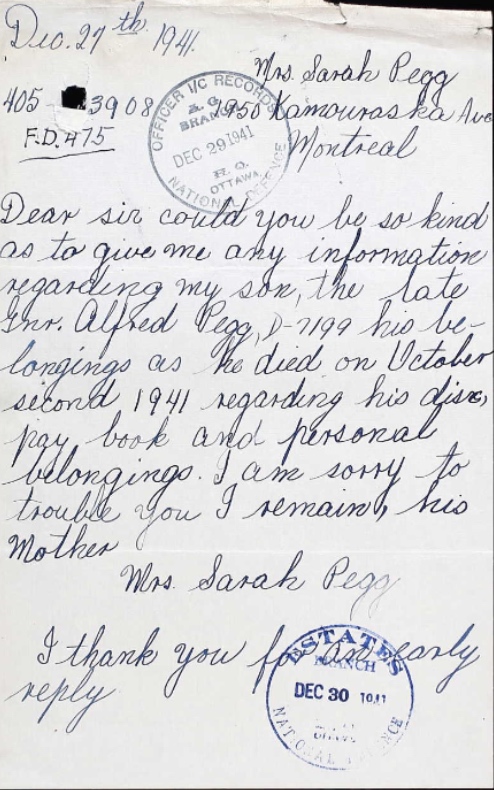 Dec. 27th 1941.
Mrs. Sarah Pegg
405 3908 1950 Kamouraska Ave
F.D. 475
Montreal
OFFICER I/C RECORDS
A.G.
BRANCH
DEC 29 1941
H.Q.
OTTAWA
NATIONAL DEFENCE
Dear sir could you be so kind
as to give me any information
regarding my son, the late
Gnr. Alfred Pegg, D-7199 his be-
longings as he died on October
second 1941 regarding his disc,
pay book and personal
belongings. I am sorry to
trouble you I remain, his
Mother
Mrs. Sarah Pegg
I thank you for an early
reply
ESTATES
BRANCH
DEC 30 1941
NATIONAL DEFENCE